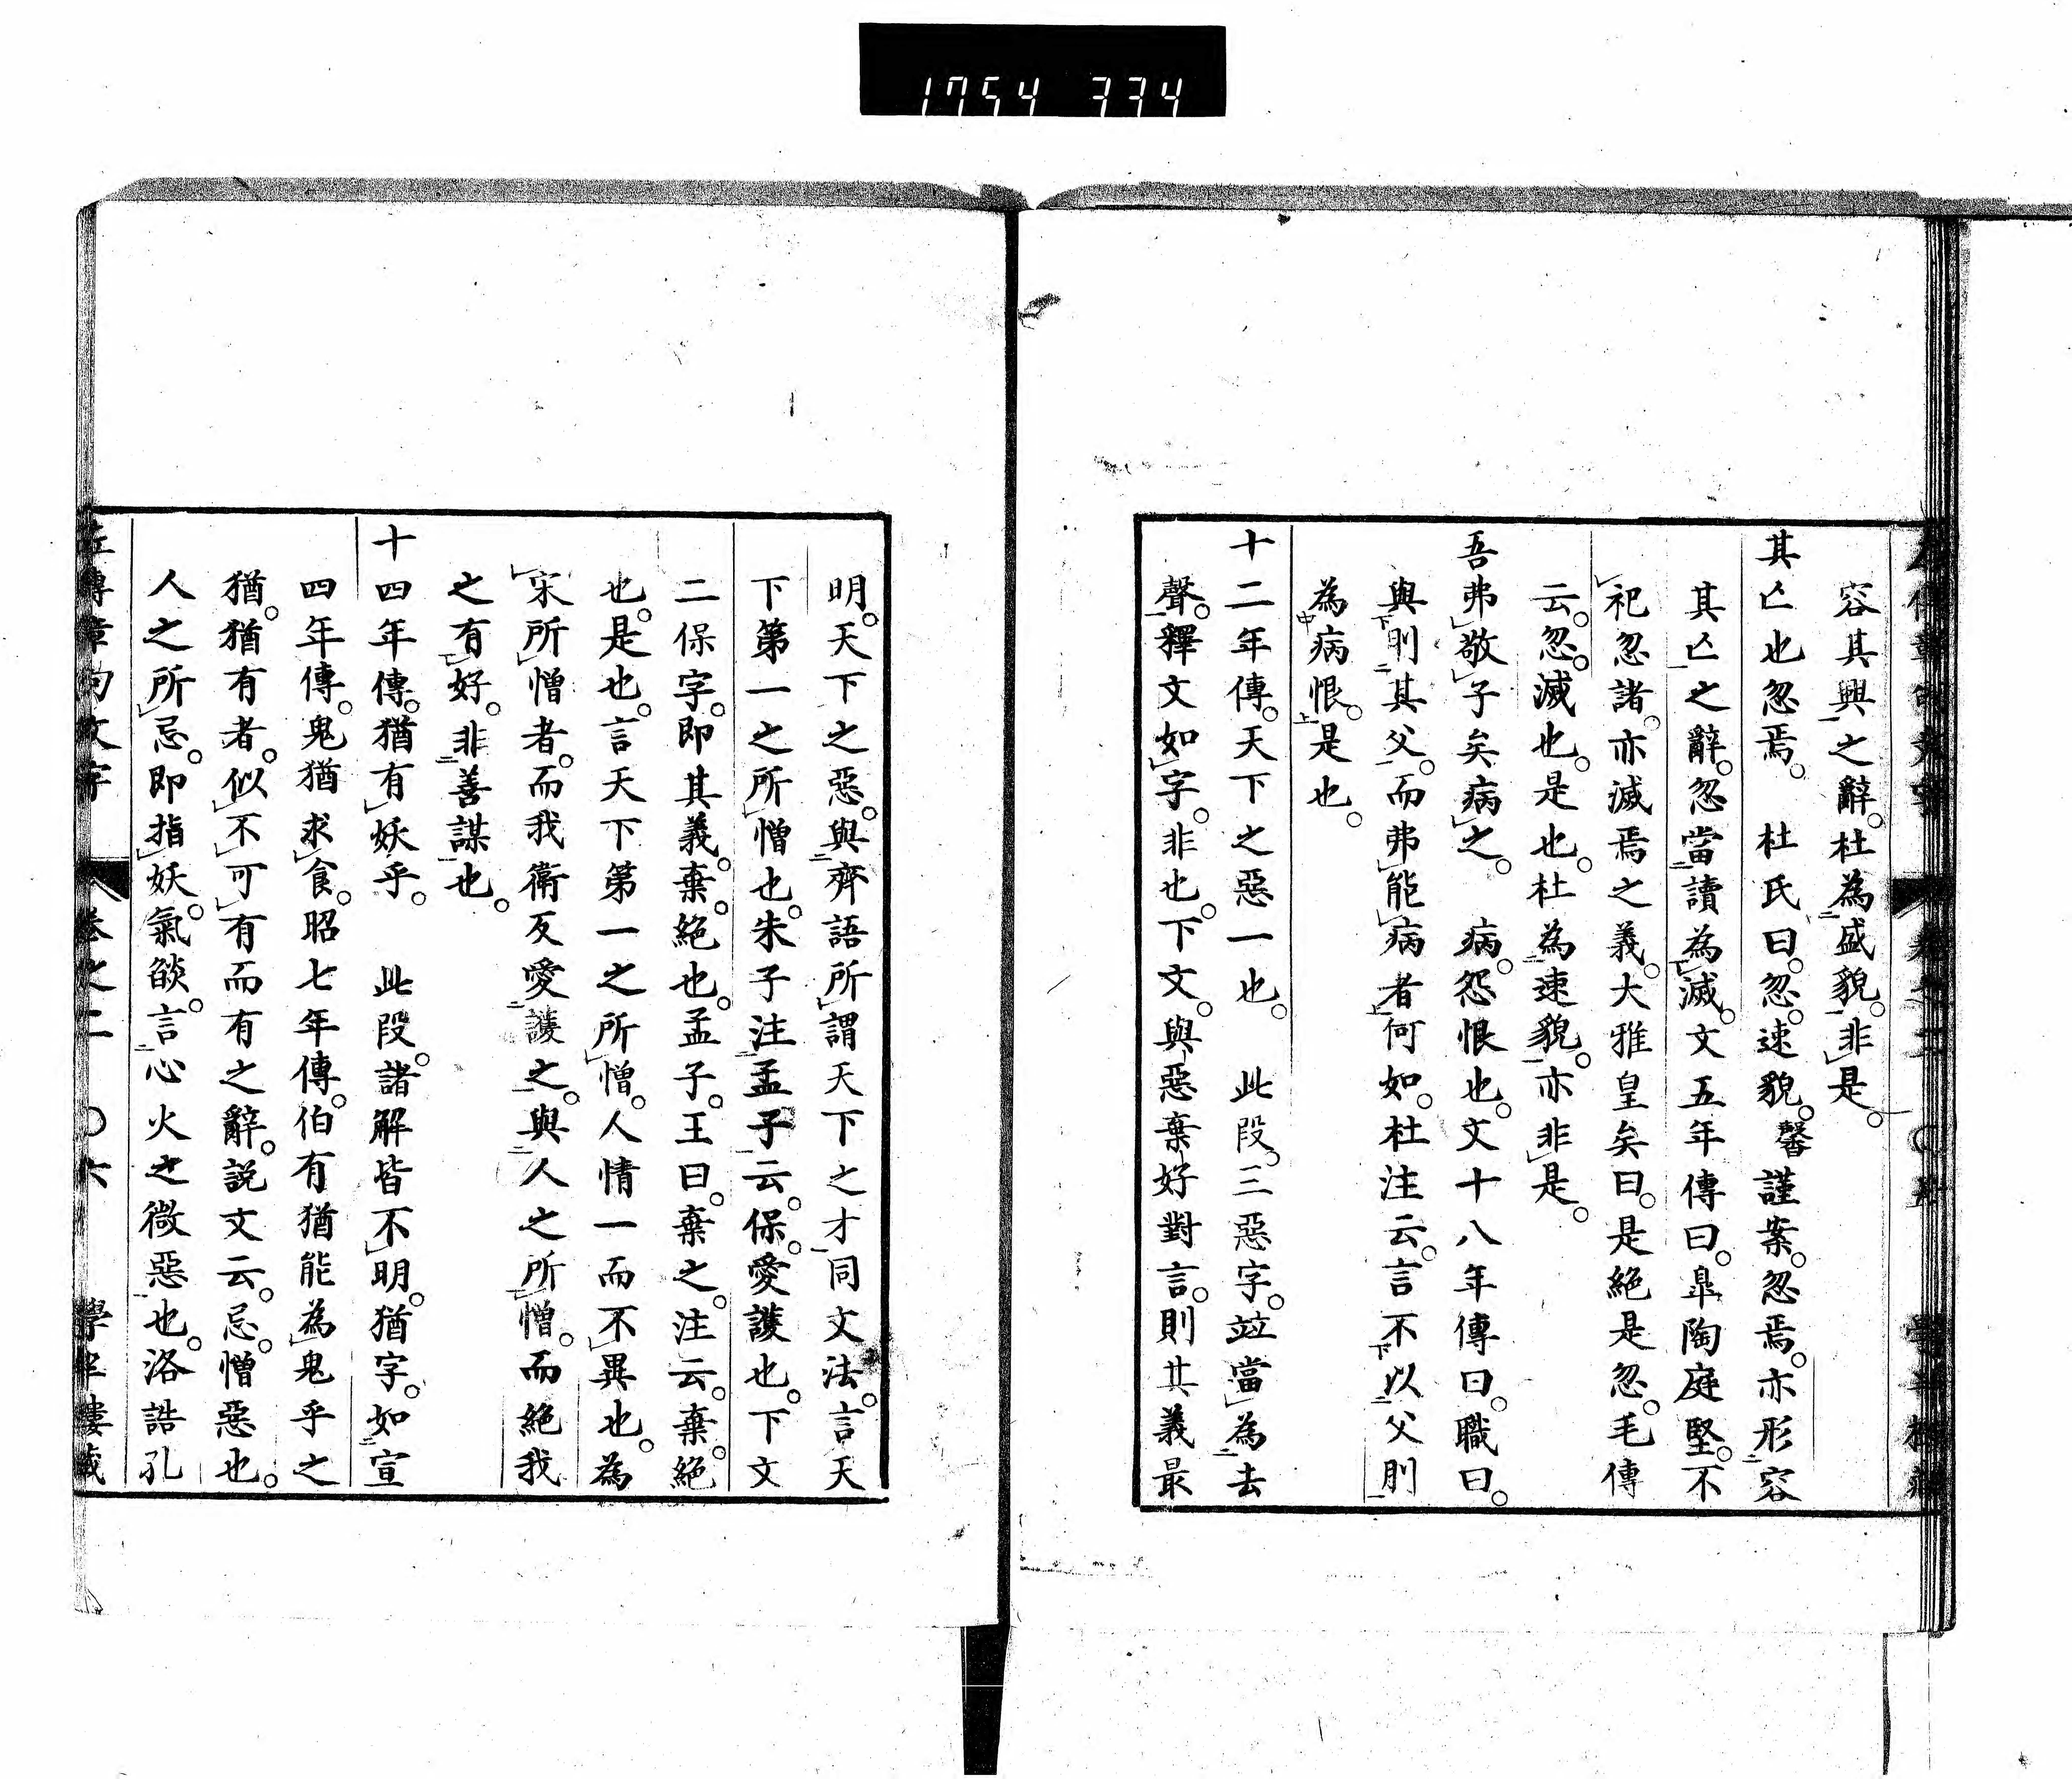 1754 334
容其興之辭。杜為盛貌。非是。
其亾也忽焉。 杜氏曰。忽。速貌。馨謹案。忽焉。亦形容
其亾之辭。忽當讀為滅。文五年傳曰。皐陶庭堅。不
祀忽諸。亦滅焉之義。大雅皇矣曰。是絕是忽。毛傳
云。忽。滅也。是也。杜為速貌。亦非是。
吾弗敬子矣病之。 病。怨恨也。文十八年傳曰。職曰。
與刖其父。而弗能病者何如。杜注云。言不以父刖
為病恨。是也。
十二年傳。天下之惡一也。 此段。三惡字。竝當為去
聲。釋文如字。非也。下文。與惡棄好對言。則其義最
明。天下之惡。與齊語所謂天下之才同文法。言天
下第一之所憎也。朱子注孟子云。保。愛護也。下文
二保字。即其義。棄。絕也。孟子。王曰。棄之。注云。棄。絕
也。是也。言天下第一之所憎。人情一而不異也。為
宋所憎者。而我衛反愛護之。與人之所憎。而絕我
之有好。非善謀也。
十四年傳。猶有妖乎。 此段。諸解皆不明。猶字。如宣
四年傳。鬼猶求食。昭七年傳。伯有猶能為鬼乎之
猶。猶有者。似不可有而有之辭。說文云。忌。憎惡也。
人之所忌。即指妖。氣燄。言心火之微惡也。洛誥孔
左傳章句文字 卷之二 〇六 學半樓藏